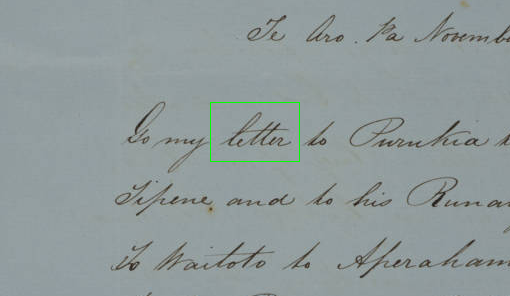 Te Aro. Pa Novemb
Go my letter to Purukia t
Tipene and to his Runan
To Waitoto to Aperaham